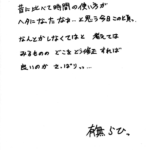 昔に比べて時間の使い方が
ヘタになったなぁ…と思う今日この頃。
なんとかしなくてはと 考えては
みるものの どこをどう修正すれば
良いのか さっぱり…